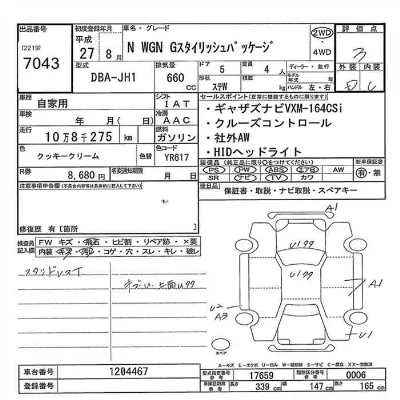 出品番号
[2219]
7043
初度登録年月
平成
27年8月
車名・グレード
N WGN Gスタイリッシュパッケージ
2WD
4WD
評価点
3
外装
内装
型式
DBA-JH1
排気量
660
cc
ドア
5
形状
ステW
定員
4
人
ディーラー・並行
ハンドル
左・右
車歴
自家用
シフト
IAT
セールスポイント
・ギャザズナビVXM-164CSi
・クルーズコントロール
・社外AW
・HIDヘッドライト
走行
10万8千275
km
冷房
AAC
燃料
ガソリン
色
クッキークリーム
色替
色コード
YR617
R券
8,680
円
名変期限
月
日
装備
PS
PW
ABS
エアB
AW
SR
ナビ
TV
カワ
新車保証書
有・無
後日部品
保証書・取説・ナビ取説・スペアキー
注意事項申告欄
修復歴
有
【箇所
】
検査員
記入欄
FW キズ・飛石・ヒビ割・リペア跡・X要
内装 キズ・汚れ・コゲ・穴・スレ・キレ・破レ
スタッドレスT
A1
U99
U99
A1
A3
U2
U1
スペア
車台番号
1204467
登録番号
型式指定番号
17659
類別区分番号
0006
長さ
339
cm
幅
147
cm
高さ
165
cm